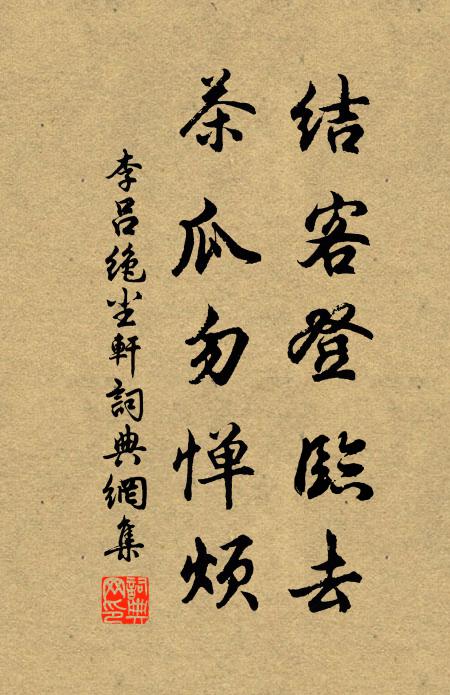 结客登臨去
茶瓜勿惮烦
李吕绝尘軒詞典網集
詞典
网印